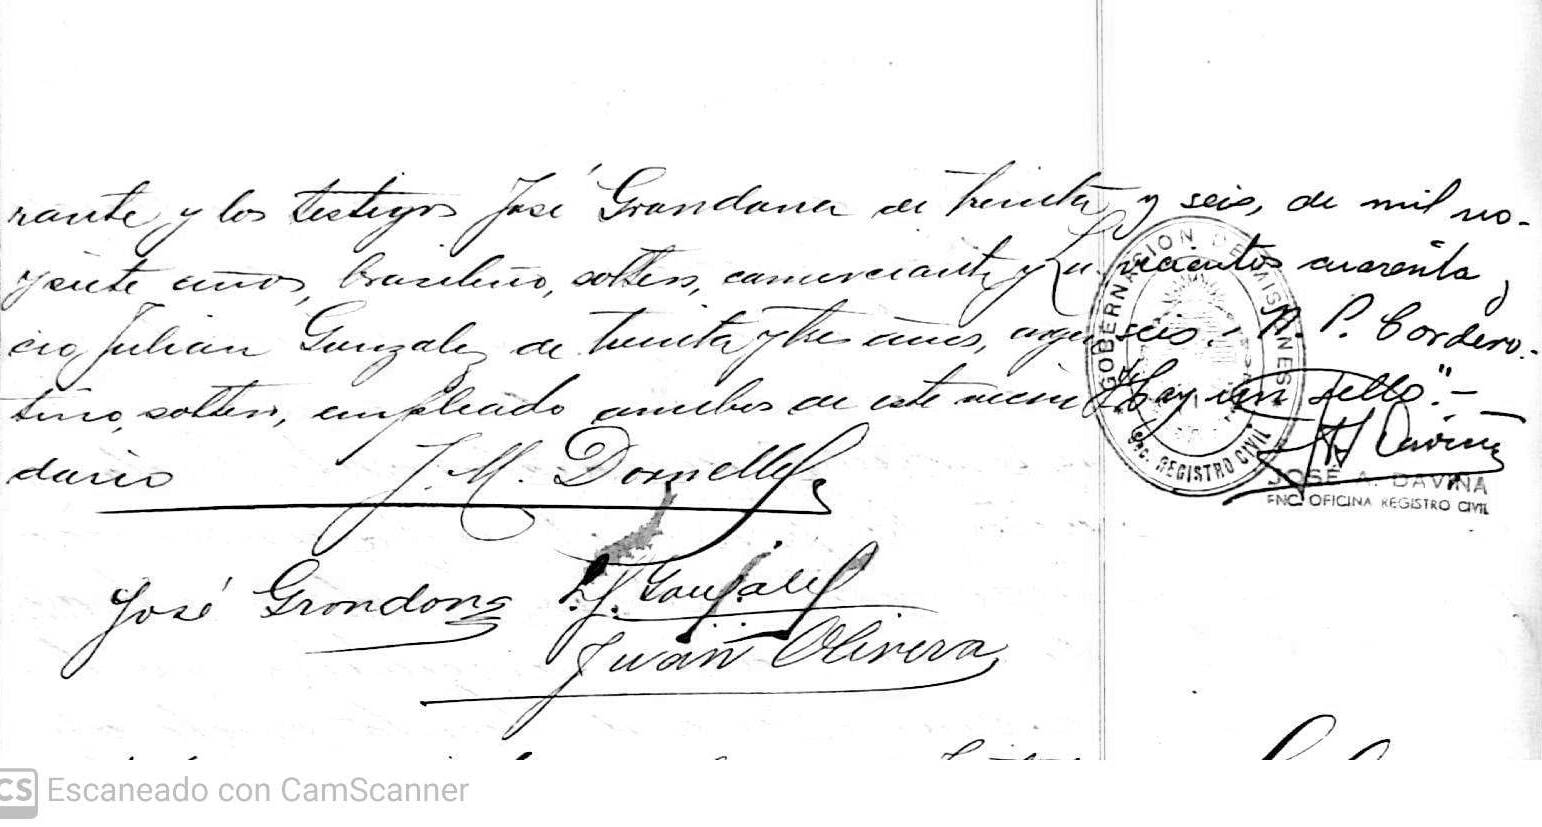 rante y los testigos José Grondona de treinta
y siete años, brasileño, soltero, comerciante y Lu-
cio Julian Gonzalez de treinta y tres años, argen
tino, soltero, empleado ambos de este vecin
dario
J. M. Dornelles
José Grondona
L. J. Gonzalez
Juan Olivera
y seis, de mil no-
vecientos cuarenta y
seis. A. P. Cordero.-
"Hay un sello".-
GOBERNACION DE MISIONES
REGISTRO CIVIL
JOSÉ A. DAVIÑA
ENC. OFICINA REGISTRO CIVIL
CS Escaneado con CamScanner